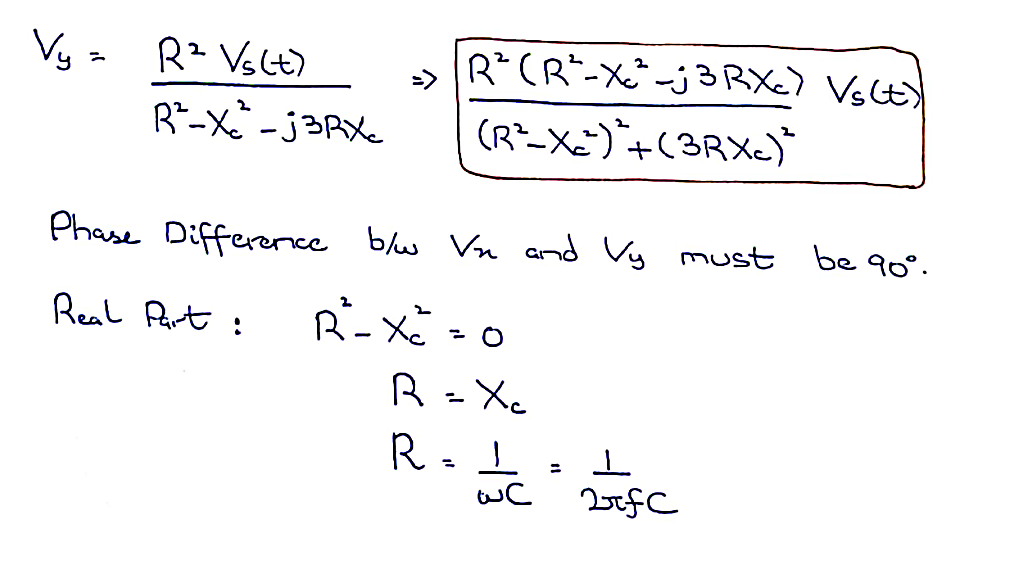 Vy = R² Vs(t) / R²-Xc²-j3RXc => R²(R²-Xc²-j3RXc) / (R²-Xc²)²+(3RXc)² Vs(t)
Phase Difference b/w Vx and Vy must be 90°.
Real Part : R²-Xc² = 0
R = Xc
R = 1/ωC = 1/2πfC